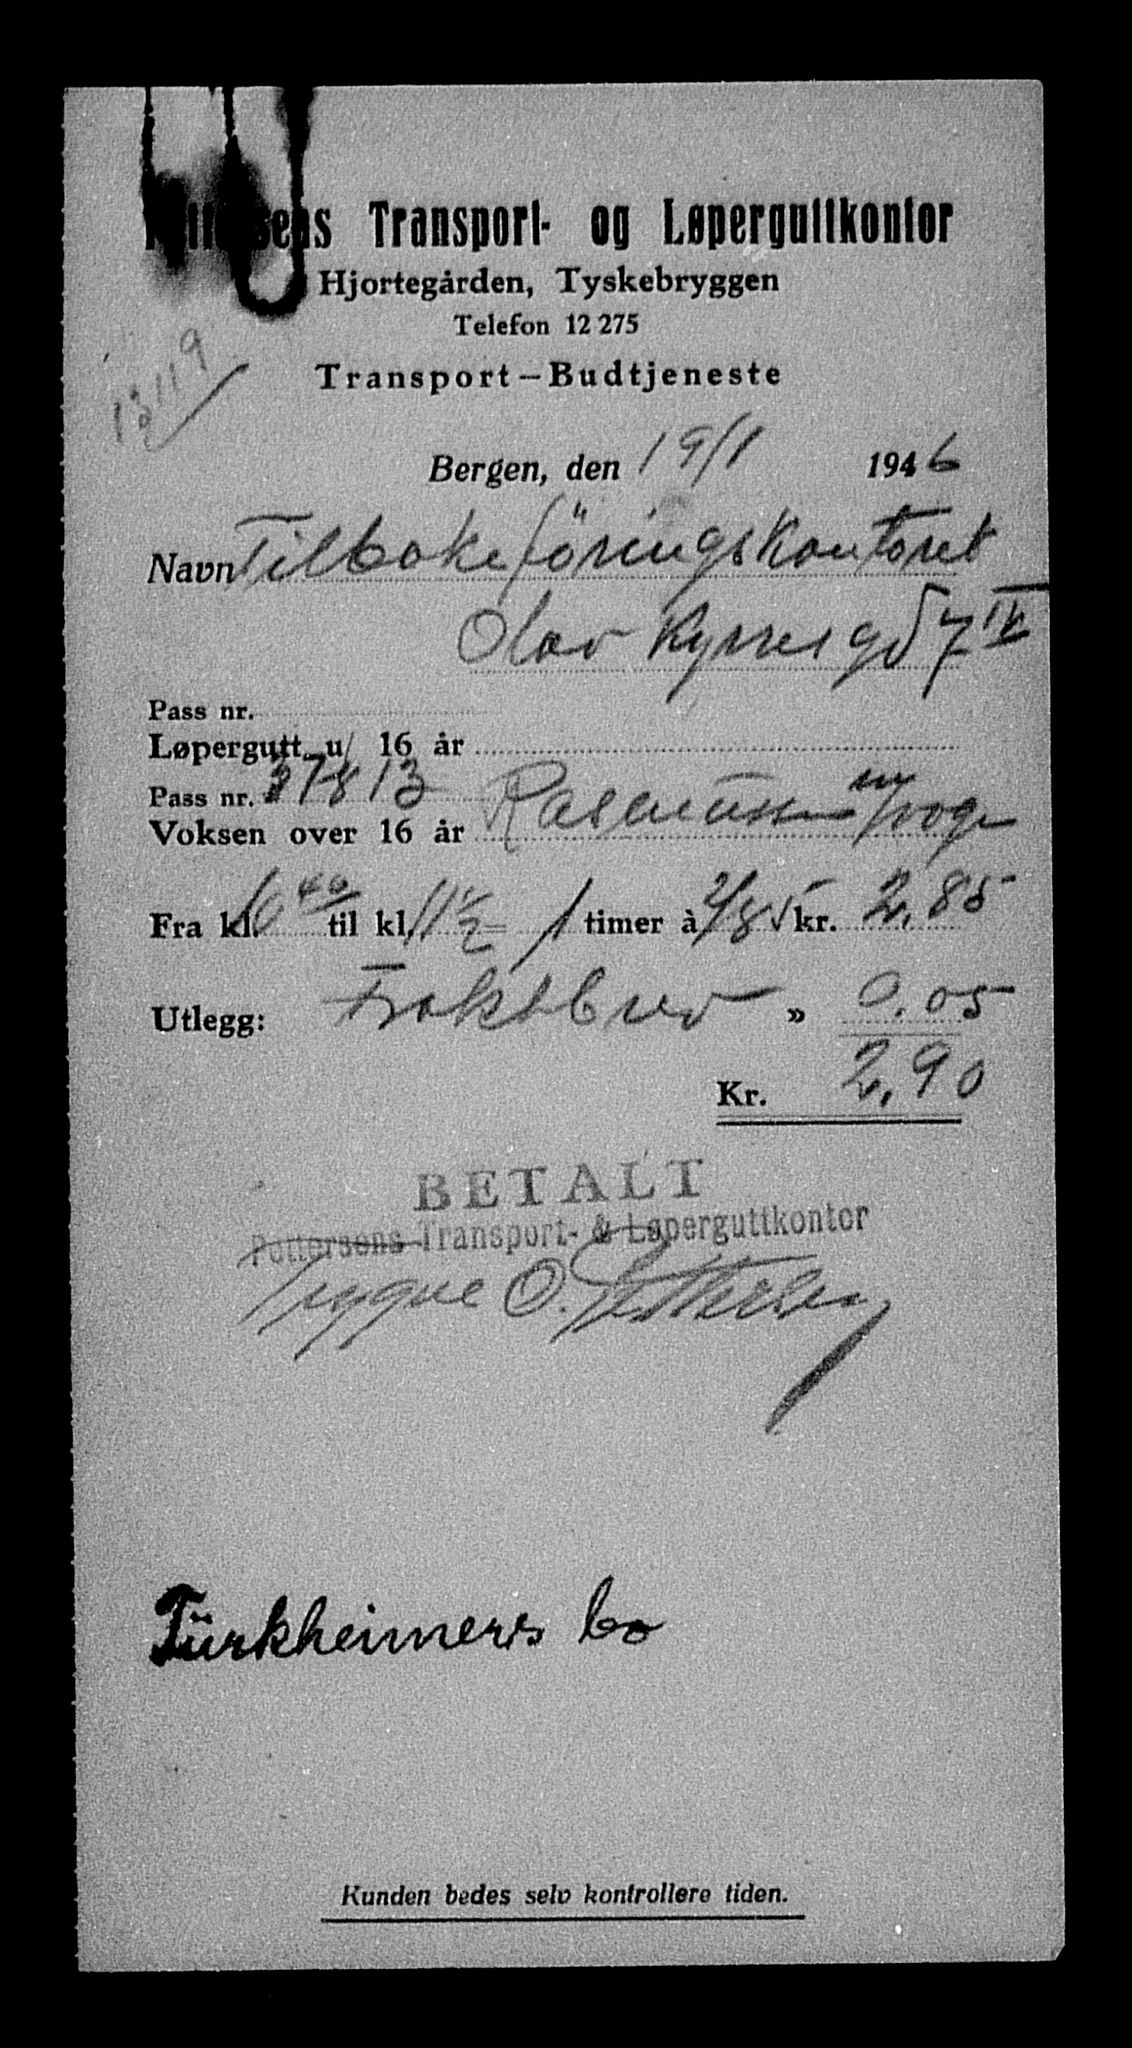 Pettersens Transport- og Løperguttkontor
Hjortegården, Tyskebryggen
Telefon 12 275
Transport – Budtjeneste
13119
Bergen, den 19/1 1946
Navn Tilbakeföringskontoret
Olav Kyrres gd 7 IV
Pass nr.
Løpergutt u/ 16 år
Pass nr. 37813
Voksen over 16 år Rasmussen m/vogn
Fra kl. 10 40 til kl. 11 1/2 1 timer à 2/85 kr. 2,85
Utlegg: Fraktbrev » 0.05
Kr. 2,90
BETALT
Pettersens Transport- & Løperguttkontor
Trygve O. Pettersen
Türkheimers bo
Kunden bedes selv kontrollere tiden.